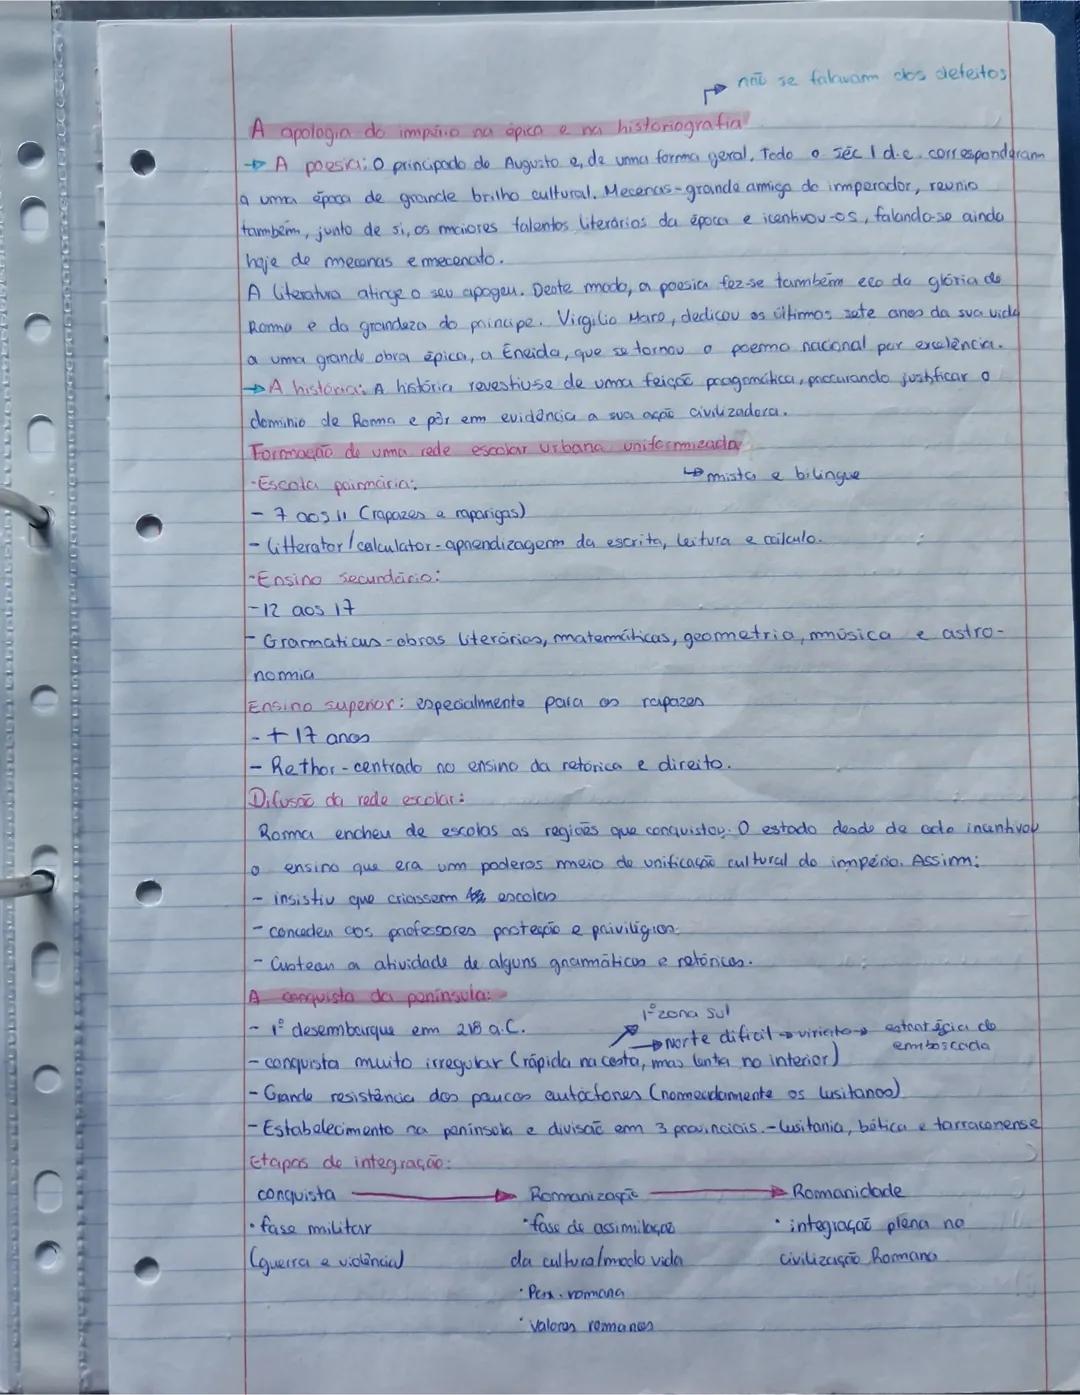 não se falavam dos defeitos
A apologia do império na épica e na historiografia
→ A poesia: O principado de Augusto e, de uma forma geral. Todo o séc I d.c. corresponderam
a uma época de grande brilho cultural. Mecenas-grande amigo do imperador, reunio
também, junto de si, os maiores talentos literários da época e icentivou-os, falando-se ainda
hoje de mecenas e mecenato.
A literatura atinge o seu apogeu. Deste modo, a poesia fez-se também eco da glória de
Roma e da grandeza do principe. Virgilio Maro, dedicou os últimos sete anos da sua vida
a uma grande obra épica, a Eneida, que se tornou o poema nacional por excelência.
→ A história: A história revestiu-se de uma feição pragmática, procurando justificar o
dominio de Roma e pôr em evidência a sua ação civilizadora.
Formação de uma rede escolar urbana uniformizada
↳ mista e bilingue
-Escola primária:
- 7 aos 11 (rapazes e raparigas)
- litterator/calculator - aprendizagem da escrita, leitura e cálculo.
-Ensino secundário:
-12 aos 17
- Gramaticus - obras literárias, matemáticas, geometria, música e astro-
nomia
Ensino superior: especialmente para os rapazes
- + 17 anos
- Rethor - centrado no ensino da retórica e direito.
Difusão da rede escolar:
Roma encheu de escolas as regiões que conquistou. O estado desde de cedo incentivou
o ensino que era um poderos meio de unificação cultural do império. Assim:
- insistiu que criassem escolas
- concedeu aos professores proteção e priviligios.
- Custeau a atividade de alguns gramáticos e retóricos.
A conquista da península:
1º zona sul
- 1º desembarque em 218 a.C.
→ norte dificil → viriato → estratégia de
emboscada
- conquista muito irregular (rápida na costa, mas lenta no interior)
- Grande resistência dos poucos autóctones (nomeadamente os lusitanos)
- Estabelecimento na península e divisão em 3 provinciais. - lusitania, bética e tarraconense
Etapas de integração:
conquista → Romanização → Romanidade
• fase militar • fase de assimilação • integração plena na
(guerra e violência) da cultura/modo vida civilização Romana
• Pax. romana
• Valores romanos